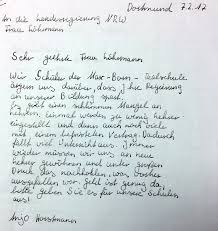 Dortmund 7.2.12
An die Landesregierung NRW
Frau Löhrmann
Sehr geehrte Frau Löhrmann
Wir Schüler der Max-Born-Realschule
ärgern uns darüber, dass Ihre Regierung
an unserer Bildung spart.
Es gibt einen schlimmen Mangel an
Lehrern, einmal werden zu wenig Lehrer
eingestellt und dann auch noch viele
mit einem befristeten Vertrag. Dadurch
fällt viel Unterricht aus. Immer
wieder müssen wir uns an neue
Lehrer gewöhnen und unter großem
Druck das nachholen, was vorher
ausgefallen war. Geld ist genug da,
bitte geben Sie es für unsere Schulen
aus!
Anjo Horstmann